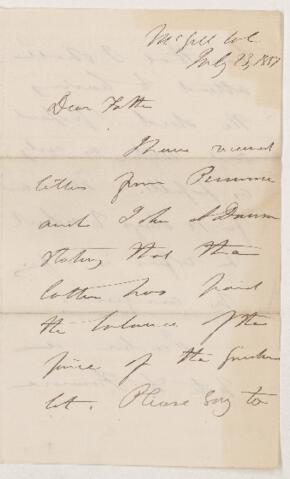 McGill Col.
July 23, 1857
Dear Father
I have received
letters from
and John
stating that the
latter has paid
the balance of the
price of the
lot. Please say to